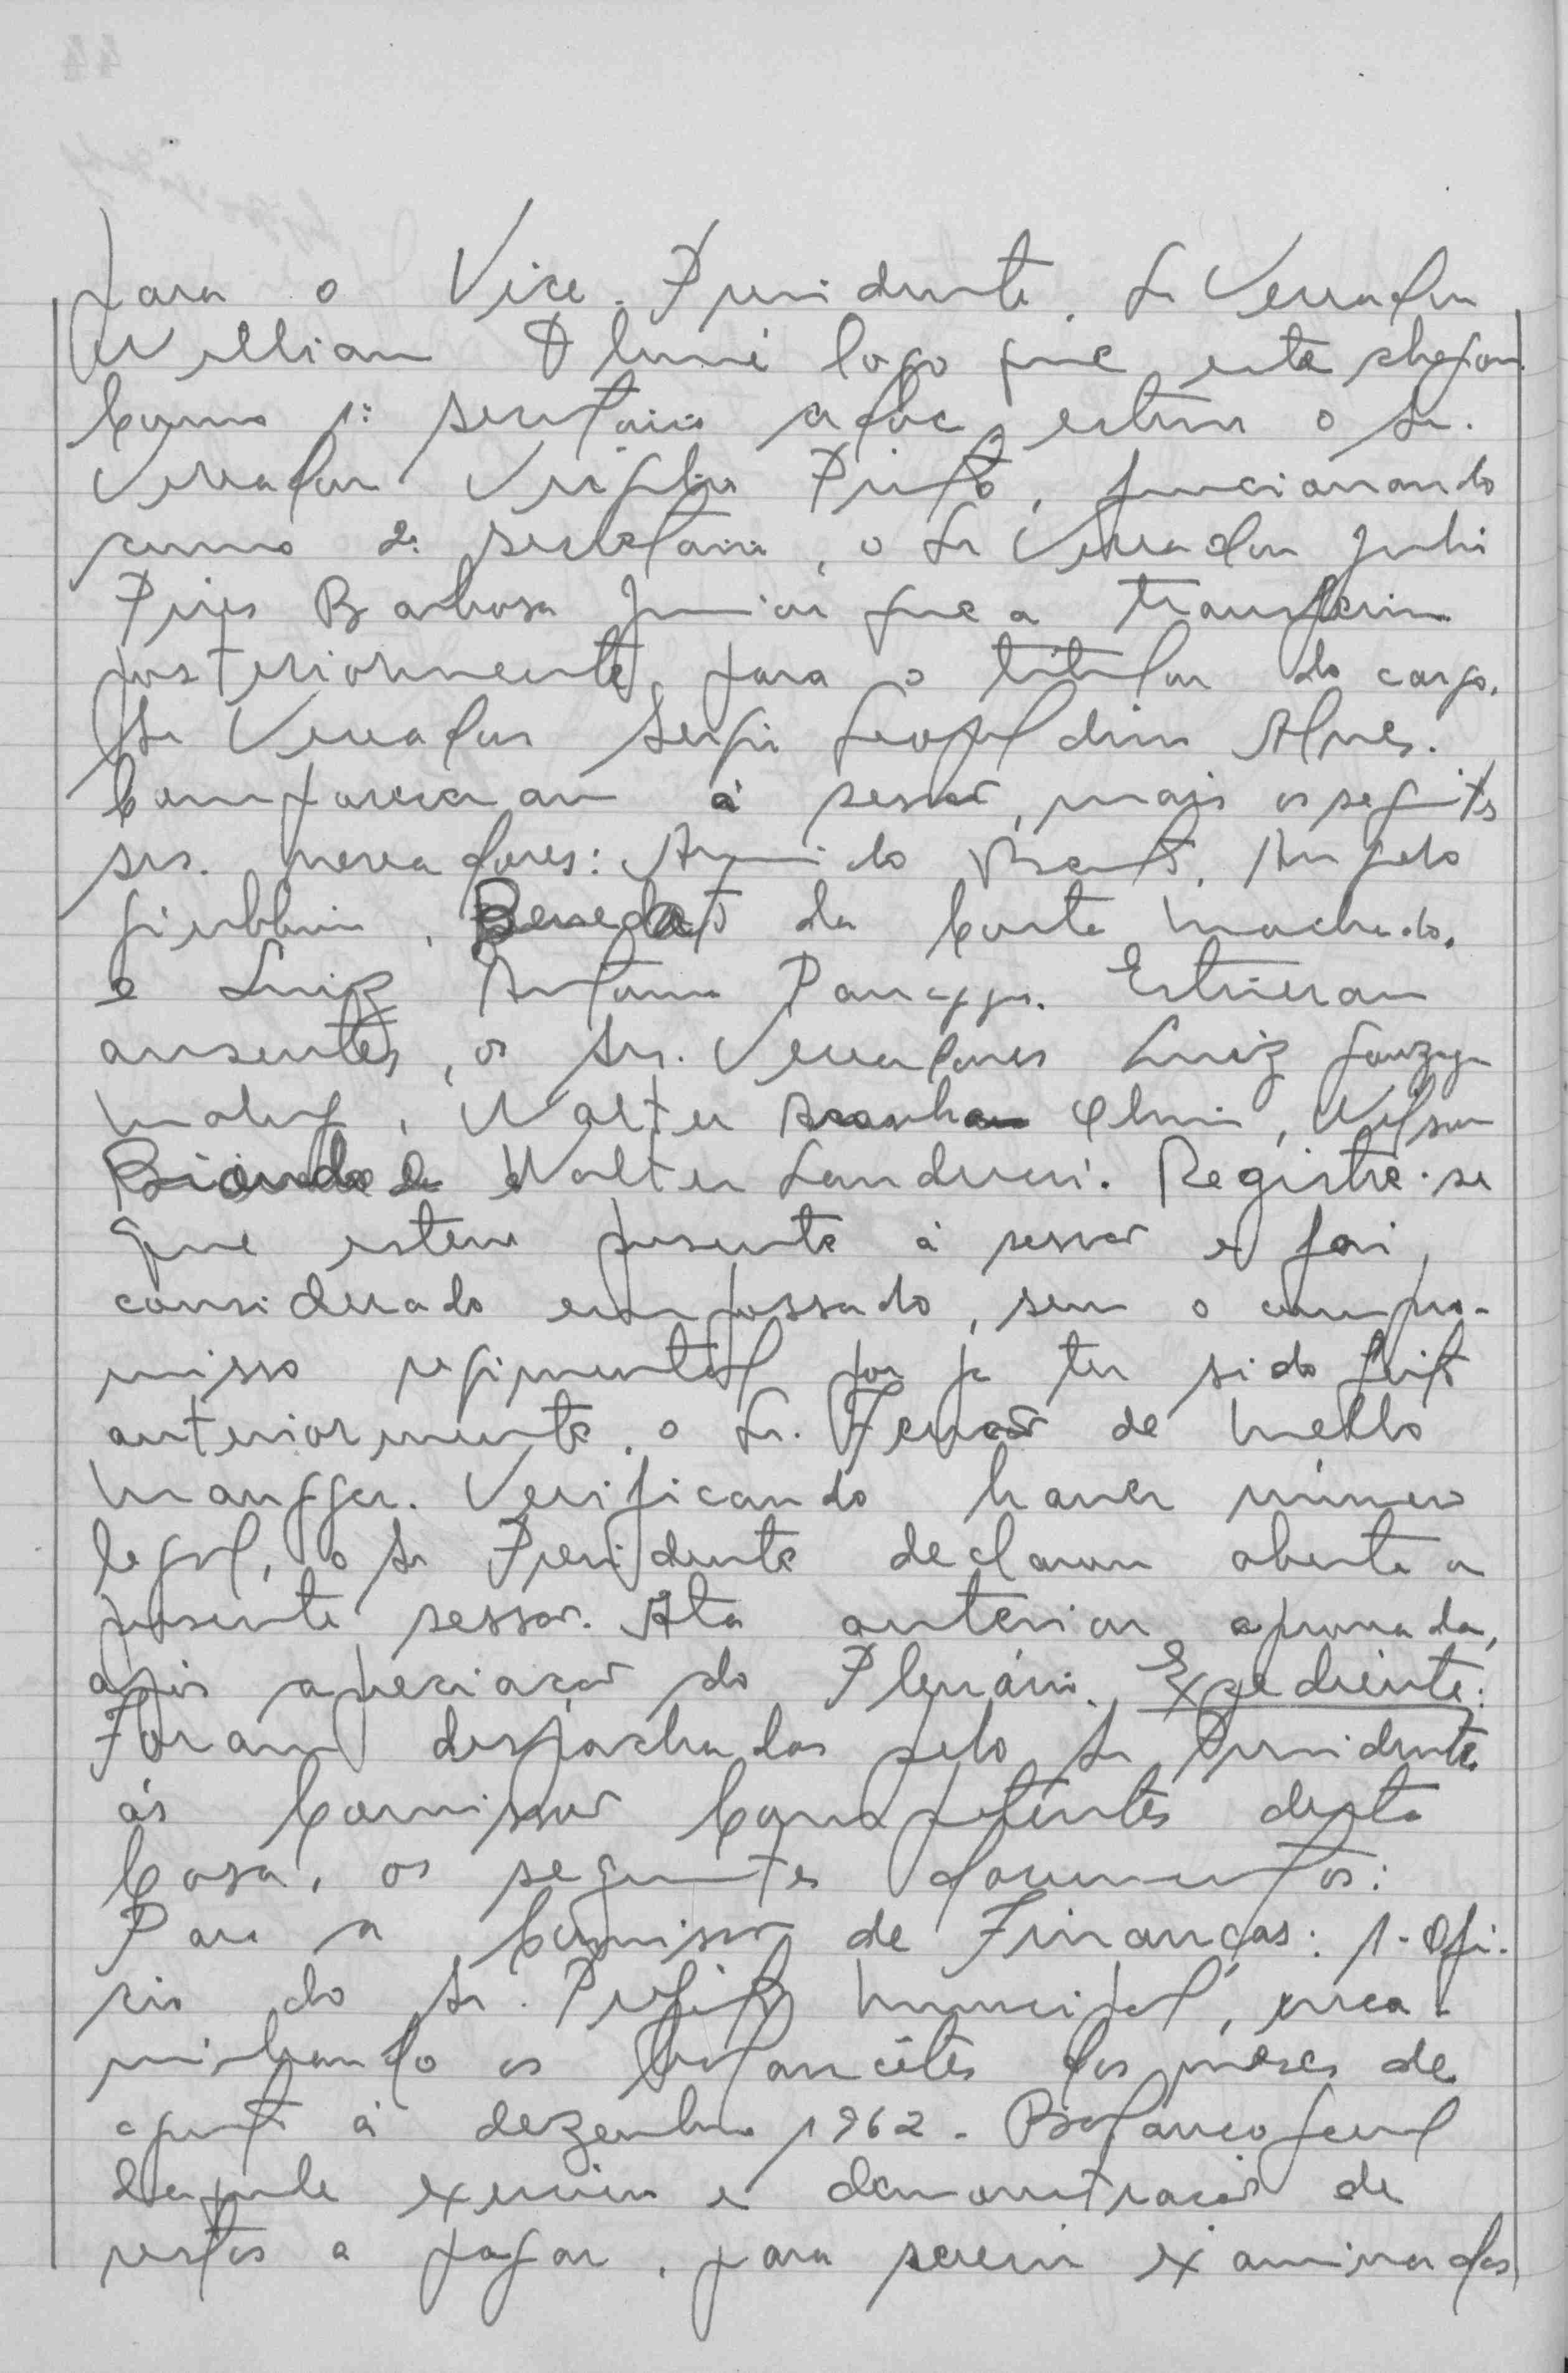 para o Vice-Presidente, Sr Vereador
Willian logo que este chegou.
Como 1º secretario adoc, esteve o Sr.
Vereador Virgilio Pinto, funcionando
como 2º secretario, o Sr Vereador Julio
Pires Barbosa Junior que a transferiu
posteriormente, para o titular do cargo,
Sr Vereador Sergio Leopoldino Alves.
Compareceram à sessão, mais os seguintes
srs. vereadores: Armindo, Angelo
, Benedito da Costa Machado,
e Luiz Antonio. Estiveram
ausentes, os Srs. Vereadores Luiz Gonzaga
, Walter, Wilson
e Walter. Registre-se
que esteve presente à sessão e foi,
considerado empossado, sem o compro-
misso regimental por já ter sido feito
anteriormente, o Sr. de Mello
. Verificando haver número
legal, o Sr Presidente declarou aberta a
presente sessão. Ata anterior aprovada,
após apreciação do Plenário. Expediente:
Foram despachados pelo Sr Presidente
às Comissões Competentes desta
Casa, os seguintes documentos:
Para a Comissão de Finanças: 1- Ofi-
cio do Sr. Prefeito Municipal, enca-
minhando os balancêtes dos meses de
agosto à dezembro 1962. Balanço geral
daquele exercicio e demonstração de
restos a pagar, para serem examinados